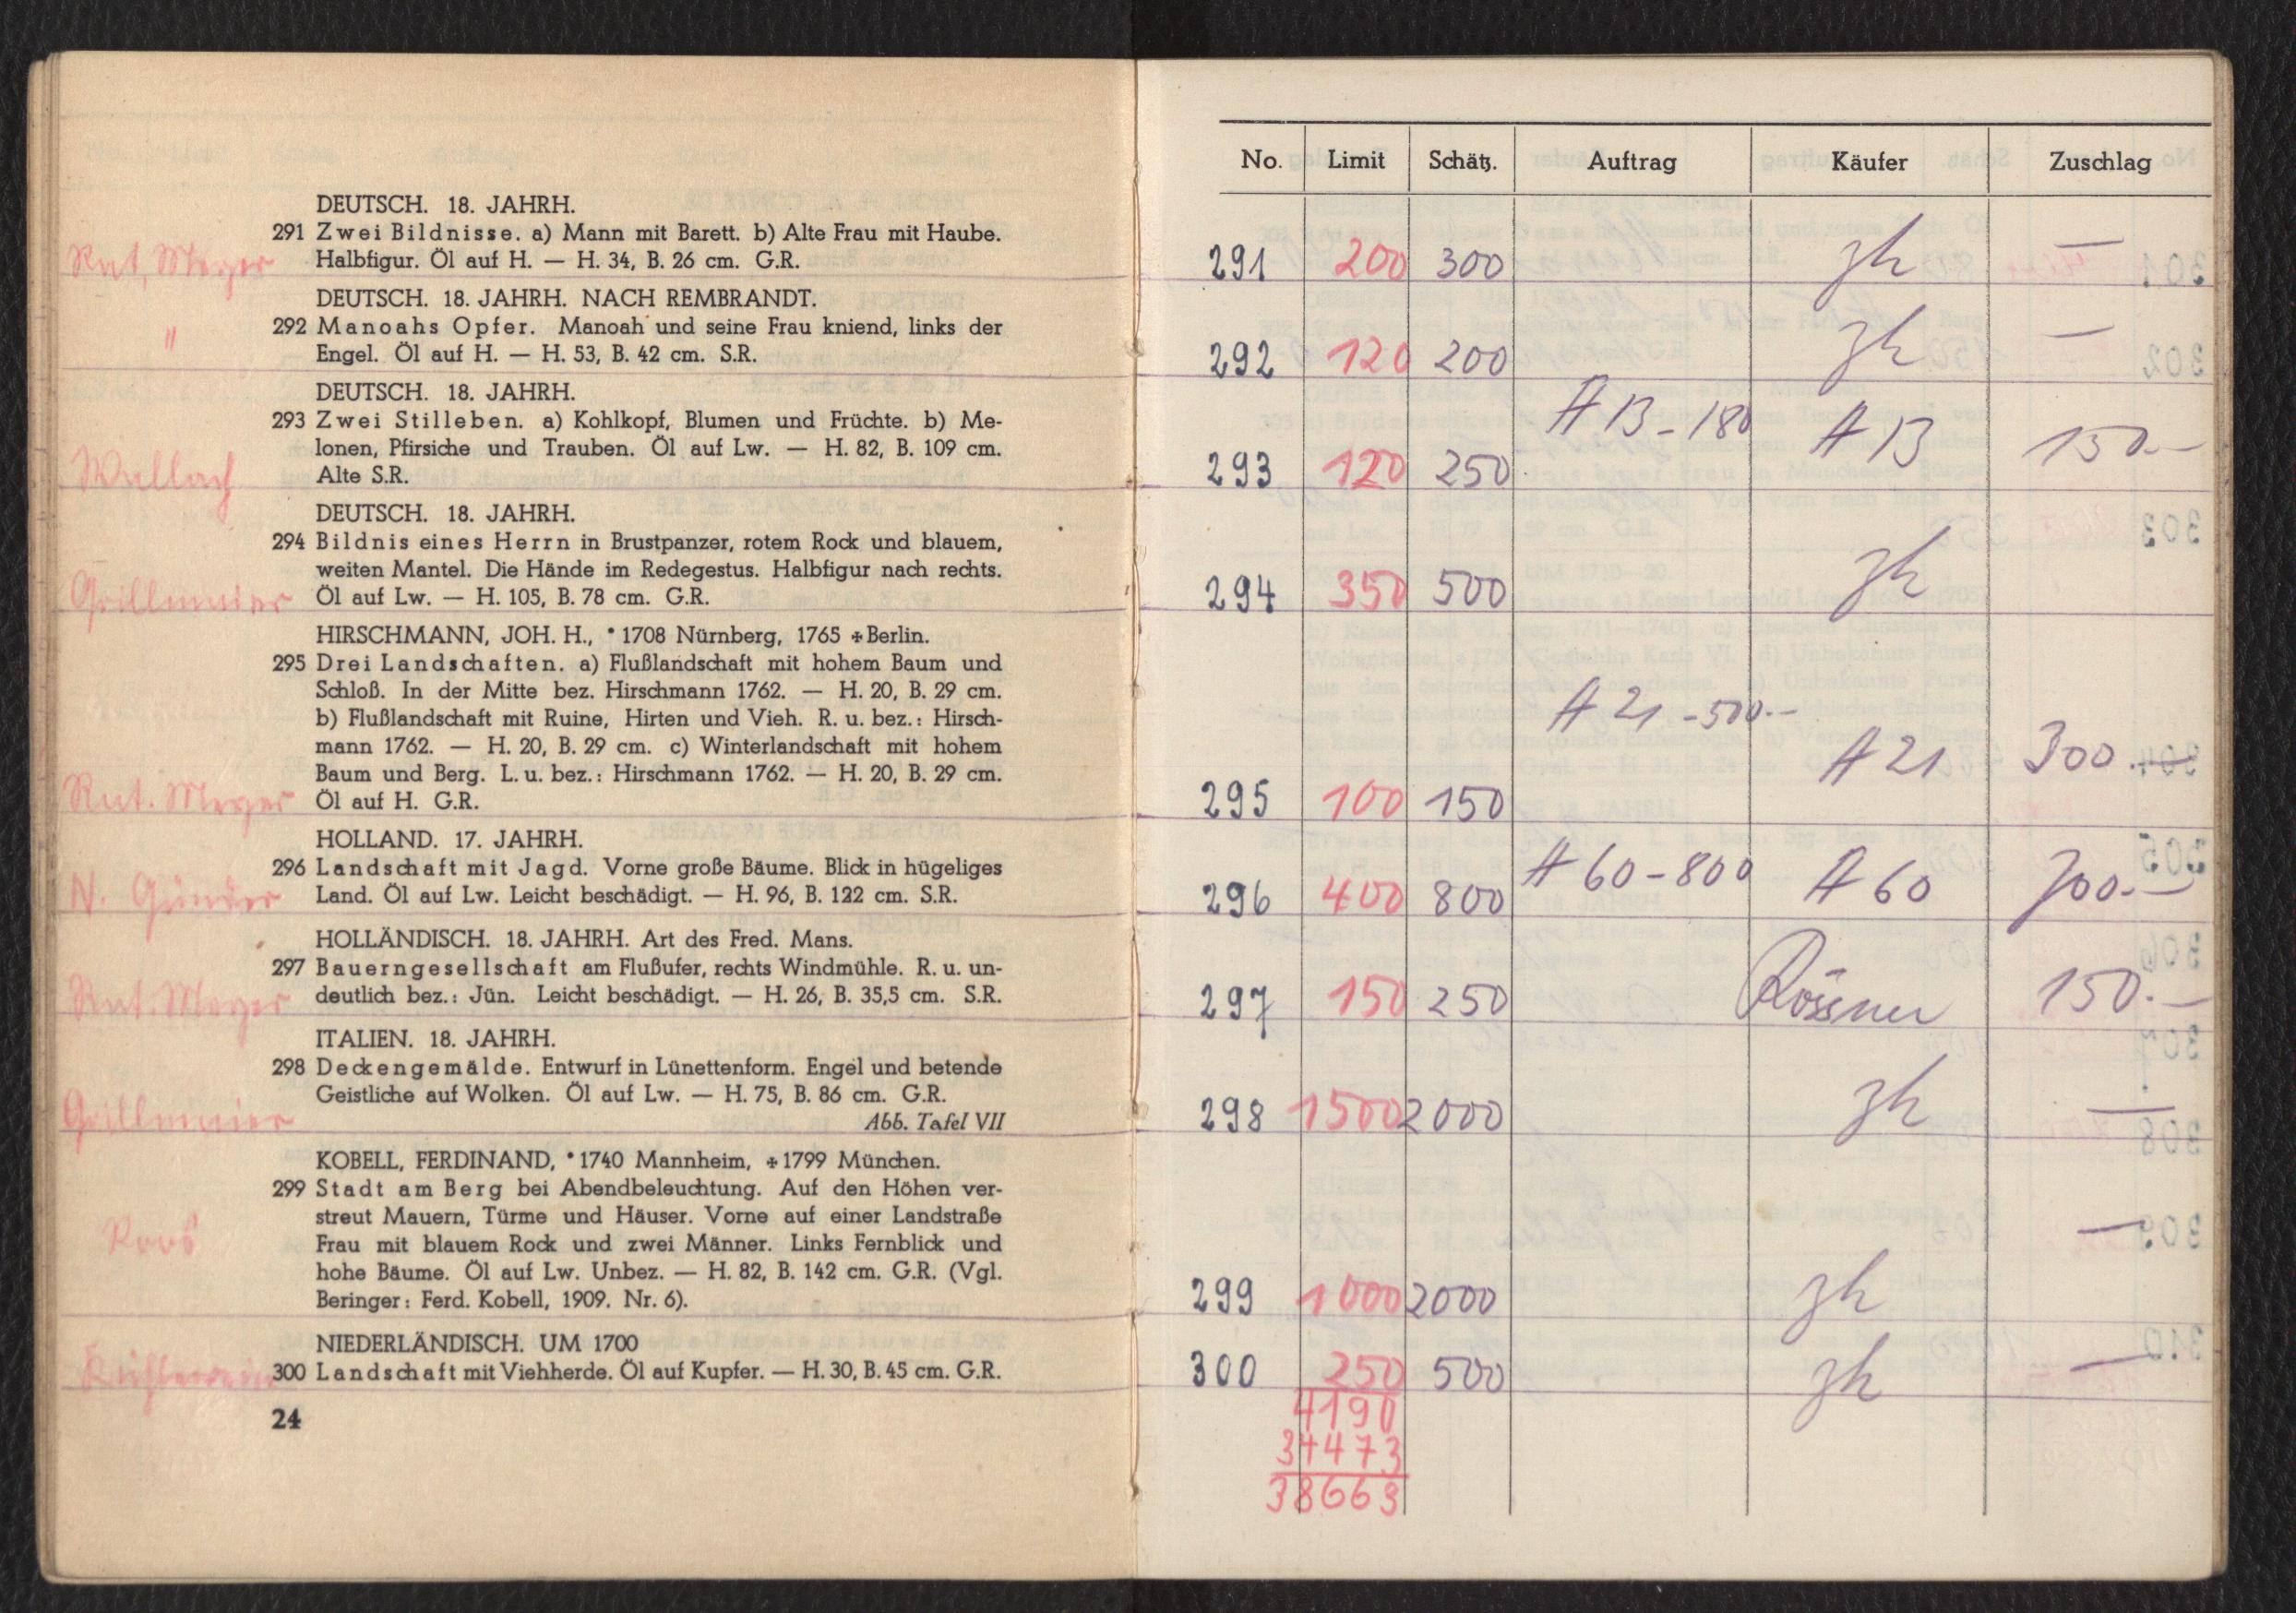 DEUTSCH. 18. JAHRH.
291 Zwei Bildnisse. a) Mann mit Barett. b) Alte Frau mit Haube.
Rnt. Meyer Halbfigur. Öl auf H. — H. 34, B. 26 cm. G.R.
DEUTSCH. 18. JAHRH. NACH REMBRANDT.
" 292 Manoahs Opfer. Manoah und seine Frau kniend, links der
Engel. Öl auf H. — H. 53, B. 42 cm. S.R.
DEUTSCH. 18. JAHRH.
293 Zwei Stilleben. a) Kohlkopf, Blumen und Früchte. b) Me-
lonen, Pfirsiche und Trauben. Öl auf Lw. — H. 82, B. 109 cm.
Wallach Alte S.R.
DEUTSCH. 18. JAHRH.
294 Bildnis eines Herrn in Brustpanzer, rotem Rock und blauem,
weiten Mantel. Die Hände im Redegestus. Halbfigur nach rechts.
Grillmaier Öl auf Lw. — H. 105, B. 78 cm. G.R.
HIRSCHMANN, JOH. H., * 1708 Nürnberg, 1765 ✠ Berlin.
295 Drei Landschaften. a) Flußlandschaft mit hohem Baum und
Schloß. In der Mitte bez. Hirschmann 1762. — H. 20, B. 29 cm.
b) Flußlandschaft mit Ruine, Hirten und Vieh. R. u. bez.: Hirsch-
mann 1762. — H. 20, B. 29 cm. c) Winterlandschaft mit hohem
Baum und Berg. L. u. bez.: Hirschmann 1762. — H. 20, B. 29 cm.
Rnt. Meyer Öl auf H. G.R.
HOLLAND. 17. JAHRH.
296 Landschaft mit Jagd. Vorne große Bäume. Blick in hügeliges
N. Günder Land. Öl auf Lw. Leicht beschädigt. — H. 96, B. 122 cm. S.R.
HOLLÄNDISCH. 18. JAHRH. Art des Fred. Mans.
297 Bauerngesellschaft am Flußufer, rechts Windmühle. R. u. un-
Rnt. Meyer deutlich bez.: Jün. Leicht beschädigt. — H. 26, B. 35,5 cm. S.R.
ITALIEN. 18. JAHRH.
298 Deckengemälde. Entwurf in Lünettenform. Engel und betende
Geistliche auf Wolken. Öl auf Lw. — H. 75, B. 86 cm. G.R.
Grillmaier Abb. Tafel VII
KOBELL, FERDINAND, * 1740 Mannheim, ✠ 1799 München.
299 Stadt am Berg bei Abendbeleuchtung. Auf den Höhen ver-
streut Mauern, Türme und Häuser. Vorne auf einer Landstraße
Roos Frau mit blauem Rock und zwei Männer. Links Fernblick und
hohe Bäume. Öl auf Lw. Unbez. — H. 82, B. 142 cm. G.R. (Vgl.
Beringer: Ferd. Kobell, 1909. Nr. 6).
NIEDERLÄNDISCH. UM 1700
300 Landschaft mit Viehherde. Öl auf Kupfer. — H. 30, B. 45 cm. G.R.
24
No. Limit Schätz. Auftrag Käufer Zuschlag
291 200 300 zh —
292 120 200 zh —
293 120 250 A 13 - 180 A 13 150.-
294 350 500 zh
295 100 150 A 21 - 500.- A 21 300.-
296 400 800 A 60 - 800 A 60 700.-
297 150 250 Rössner 150.-
298 1500 2000 zh —
299 1000 2000 zh —
300 250 500 zh —
4190
34473
38663